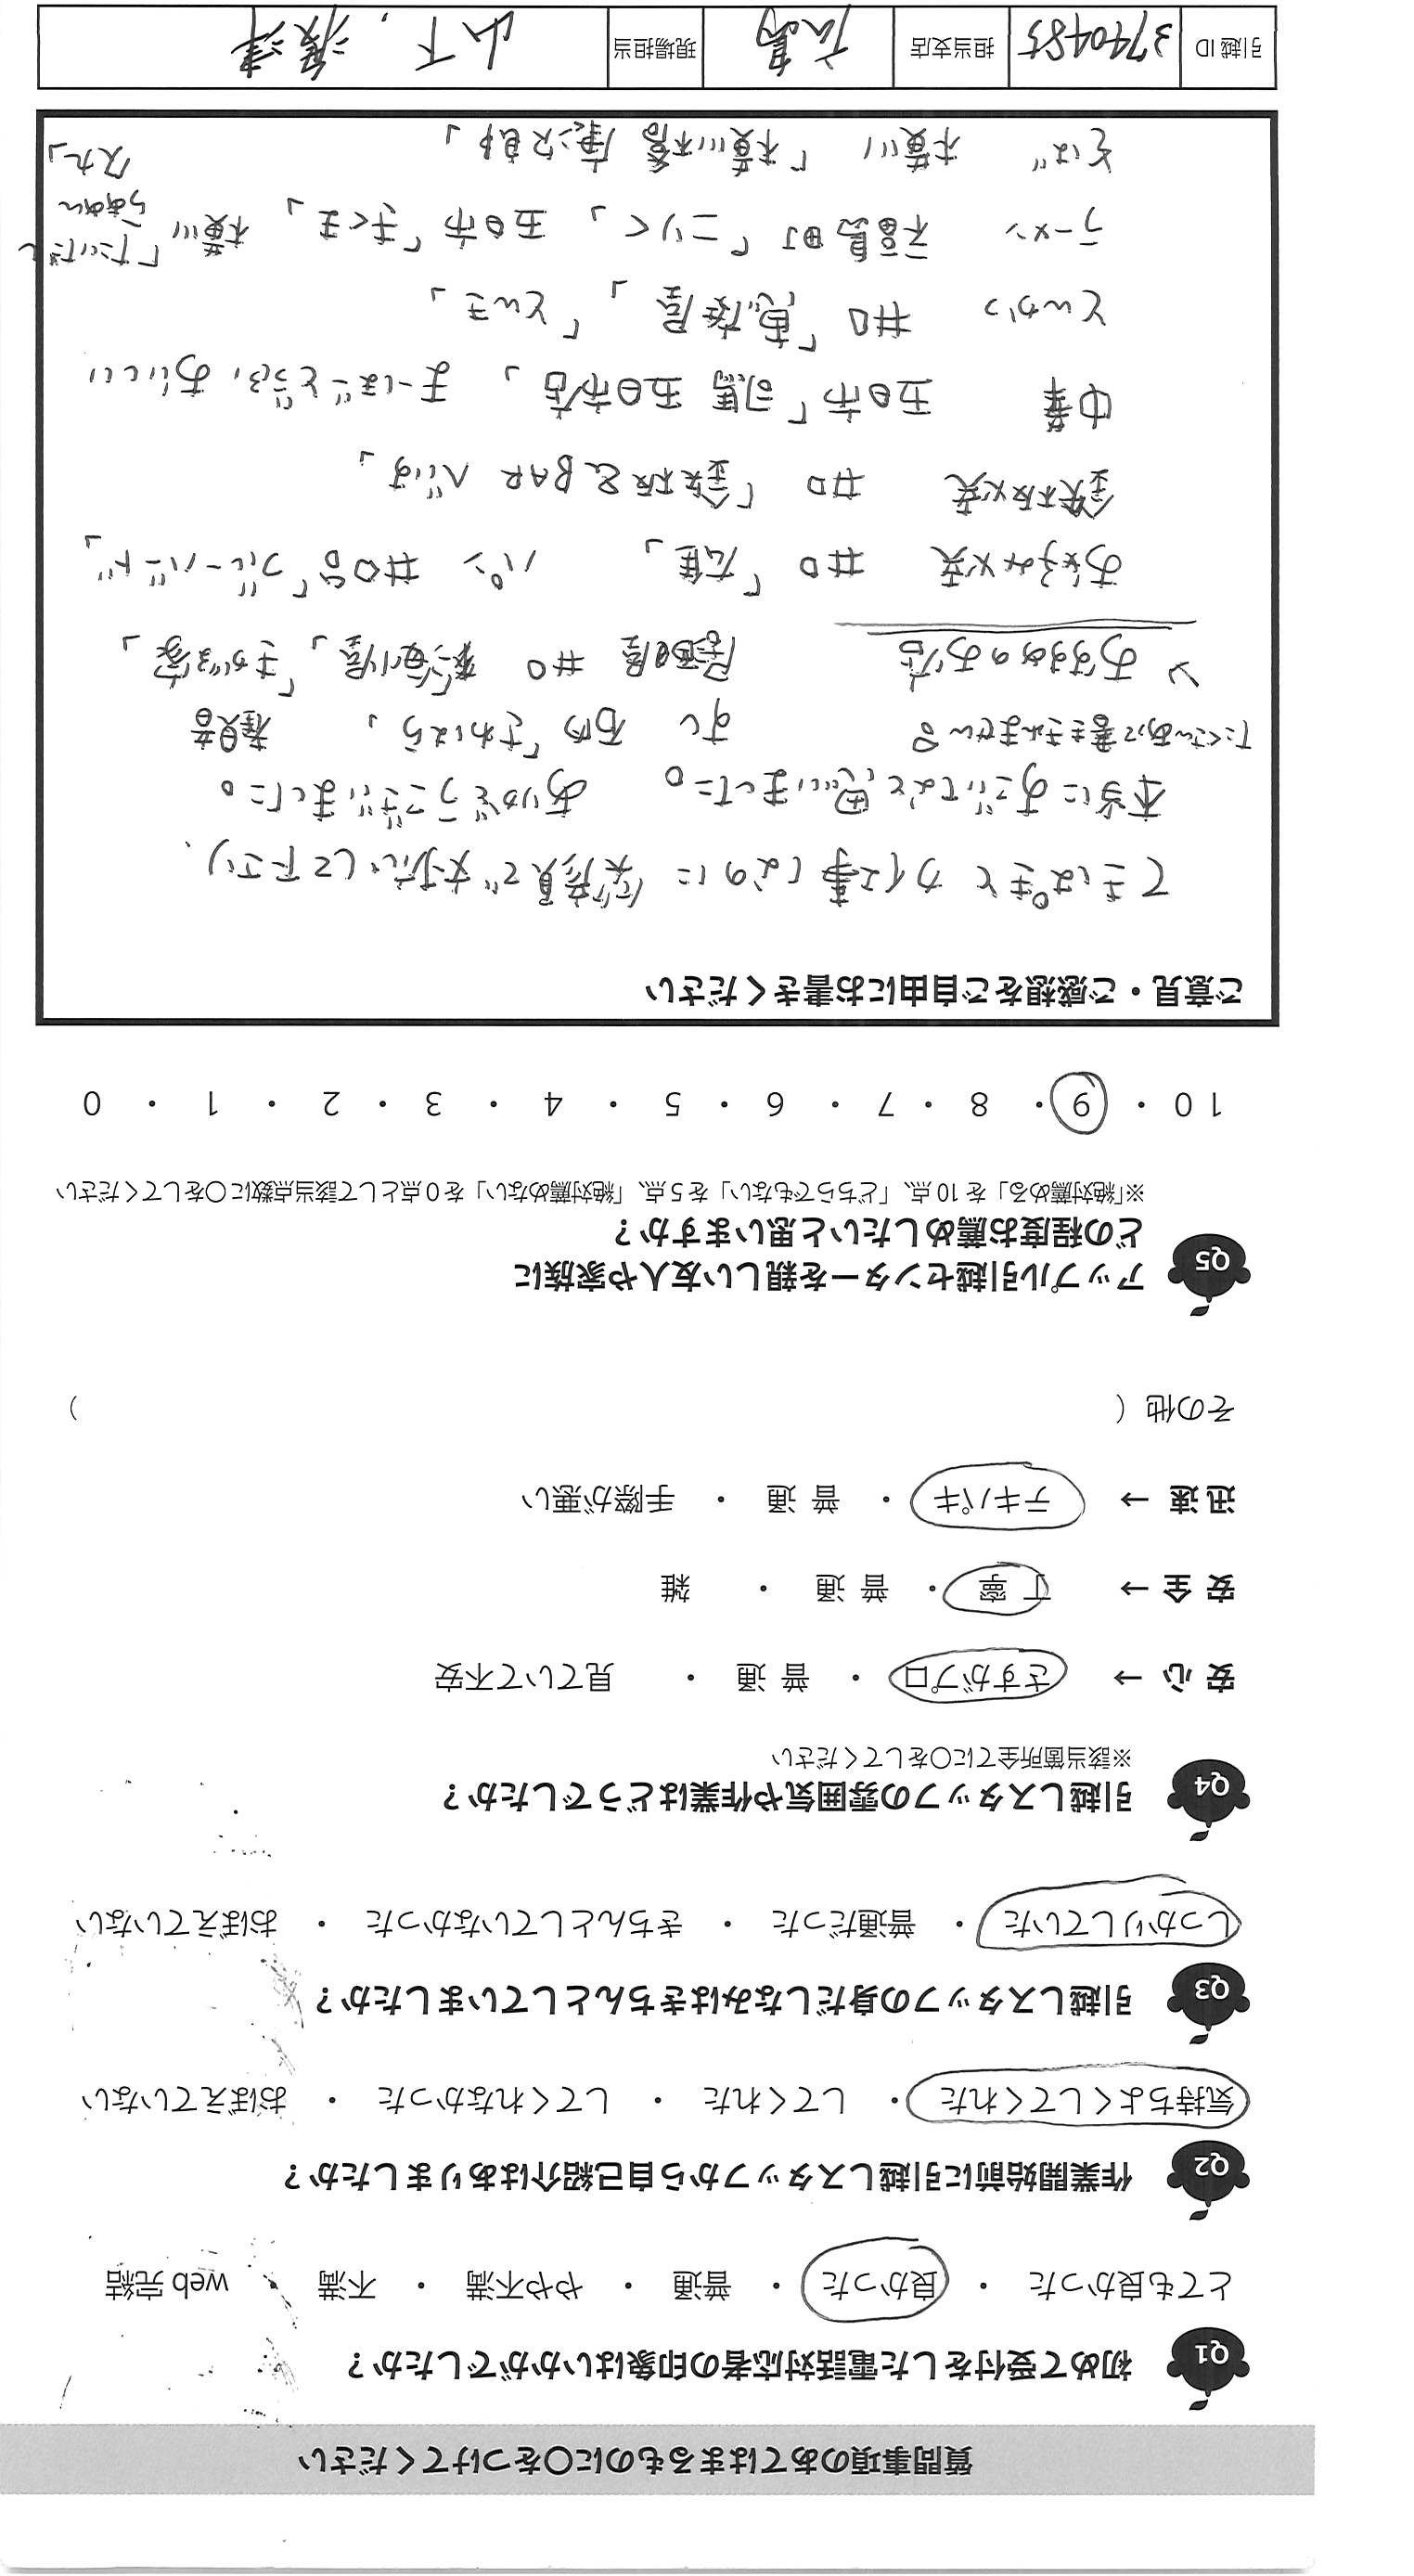 質問事項のあてはまるものに〇をつけてください
Q1 初めて受付をした電話対応者の印象はいかがでしたか？
とても良かった ・ 良かった ・ 普通 ・ やや不満 ・ 不満 ・ web 完結
Q2 作業開始前に引越しスタッフから自己紹介はありましたか？
気持ちよくしてくれた ・ してくれた ・ してくれなかった ・ おぼえていない
Q3 引越しスタッフの身だしなみはきちんとしていましたか？
しっかりしていた ・ 普通だった ・ きちんとしていなかった ・ おぼえていない
Q4 引越しスタッフの雰囲気や作業はどうでしたか？
※該当箇所全てに〇をしてください
安 心 → さすがプロ ・ 普 通 ・ 見ていて不安
安 全 → 丁 寧 ・ 普 通 ・ 雑
迅 速 → テキパキ ・ 普 通 ・ 手際が悪い
その他（ ）
Q5 アップル引越センターを親しい友人や家族に
どの程度お薦めしたいと思いますか？
※「絶対薦める」を 10 点、「どちらでもない」を 5 点、「絶対薦めない」を 0 点として該当点数に〇をしてください
10 ・ 9 ・ 8 ・ 7 ・ 6 ・ 5 ・ 4 ・ 3 ・ 2 ・ 1 ・ 0
ご意見・ご感想をご自由にお書きください
てきぱきと力仕事なのに 笑顔で対応して下さり、
本当にすごいなと思いました。 ありがとうございました。
たくさんあって書ききれません
すし 石内「さわはら」
おすすめのお店 居酒屋 井口
お好み焼 井口「広佳」 パン 井口台「ブルーバード」
鉄板焼 井口「鉄板&BAR べじす」
中華 五日市「司馬 五日市店」 まーぼーどうふ、おいしい
とんかつ 井口「恵俊屋」「とんき」
ラーメン 福島町「こりく」 五日市「まくま」 横川
そば 横川「横川橋 康次郎」
引越 ID 3740485 担当支店 広島 現場担当 山下，濱津